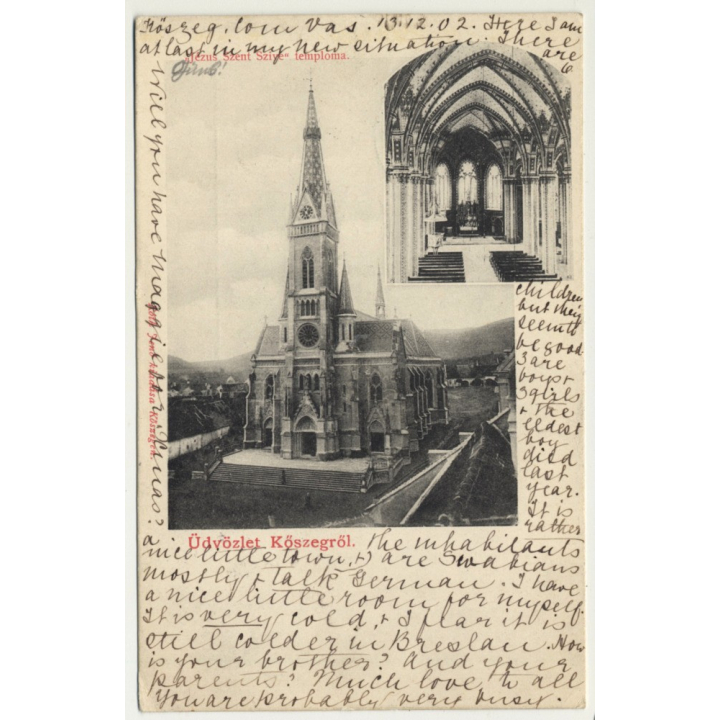 Kőszeg. Com Vas. 13.12.02. Here I am
at last in my new situation. There
are
6
"Jézus Szent Szive" temploma.
children
but they
seem to
be good
3 are
boys +
3 girls
+ the
eldest
boy
died
last
year.
It is
rather
Üdvözlet Kőszegről.
a nice little town, + the inhabitants
are Swabians
mostly + talk German. I have
a nice little room for myself.
It is very cold, + I fear it is
still colder in Breslau. How
is your brother? And your
parents? Much love to all
You are probably very busy.
Will you have Maggie for Xmas?
kiadása Kőszegen.